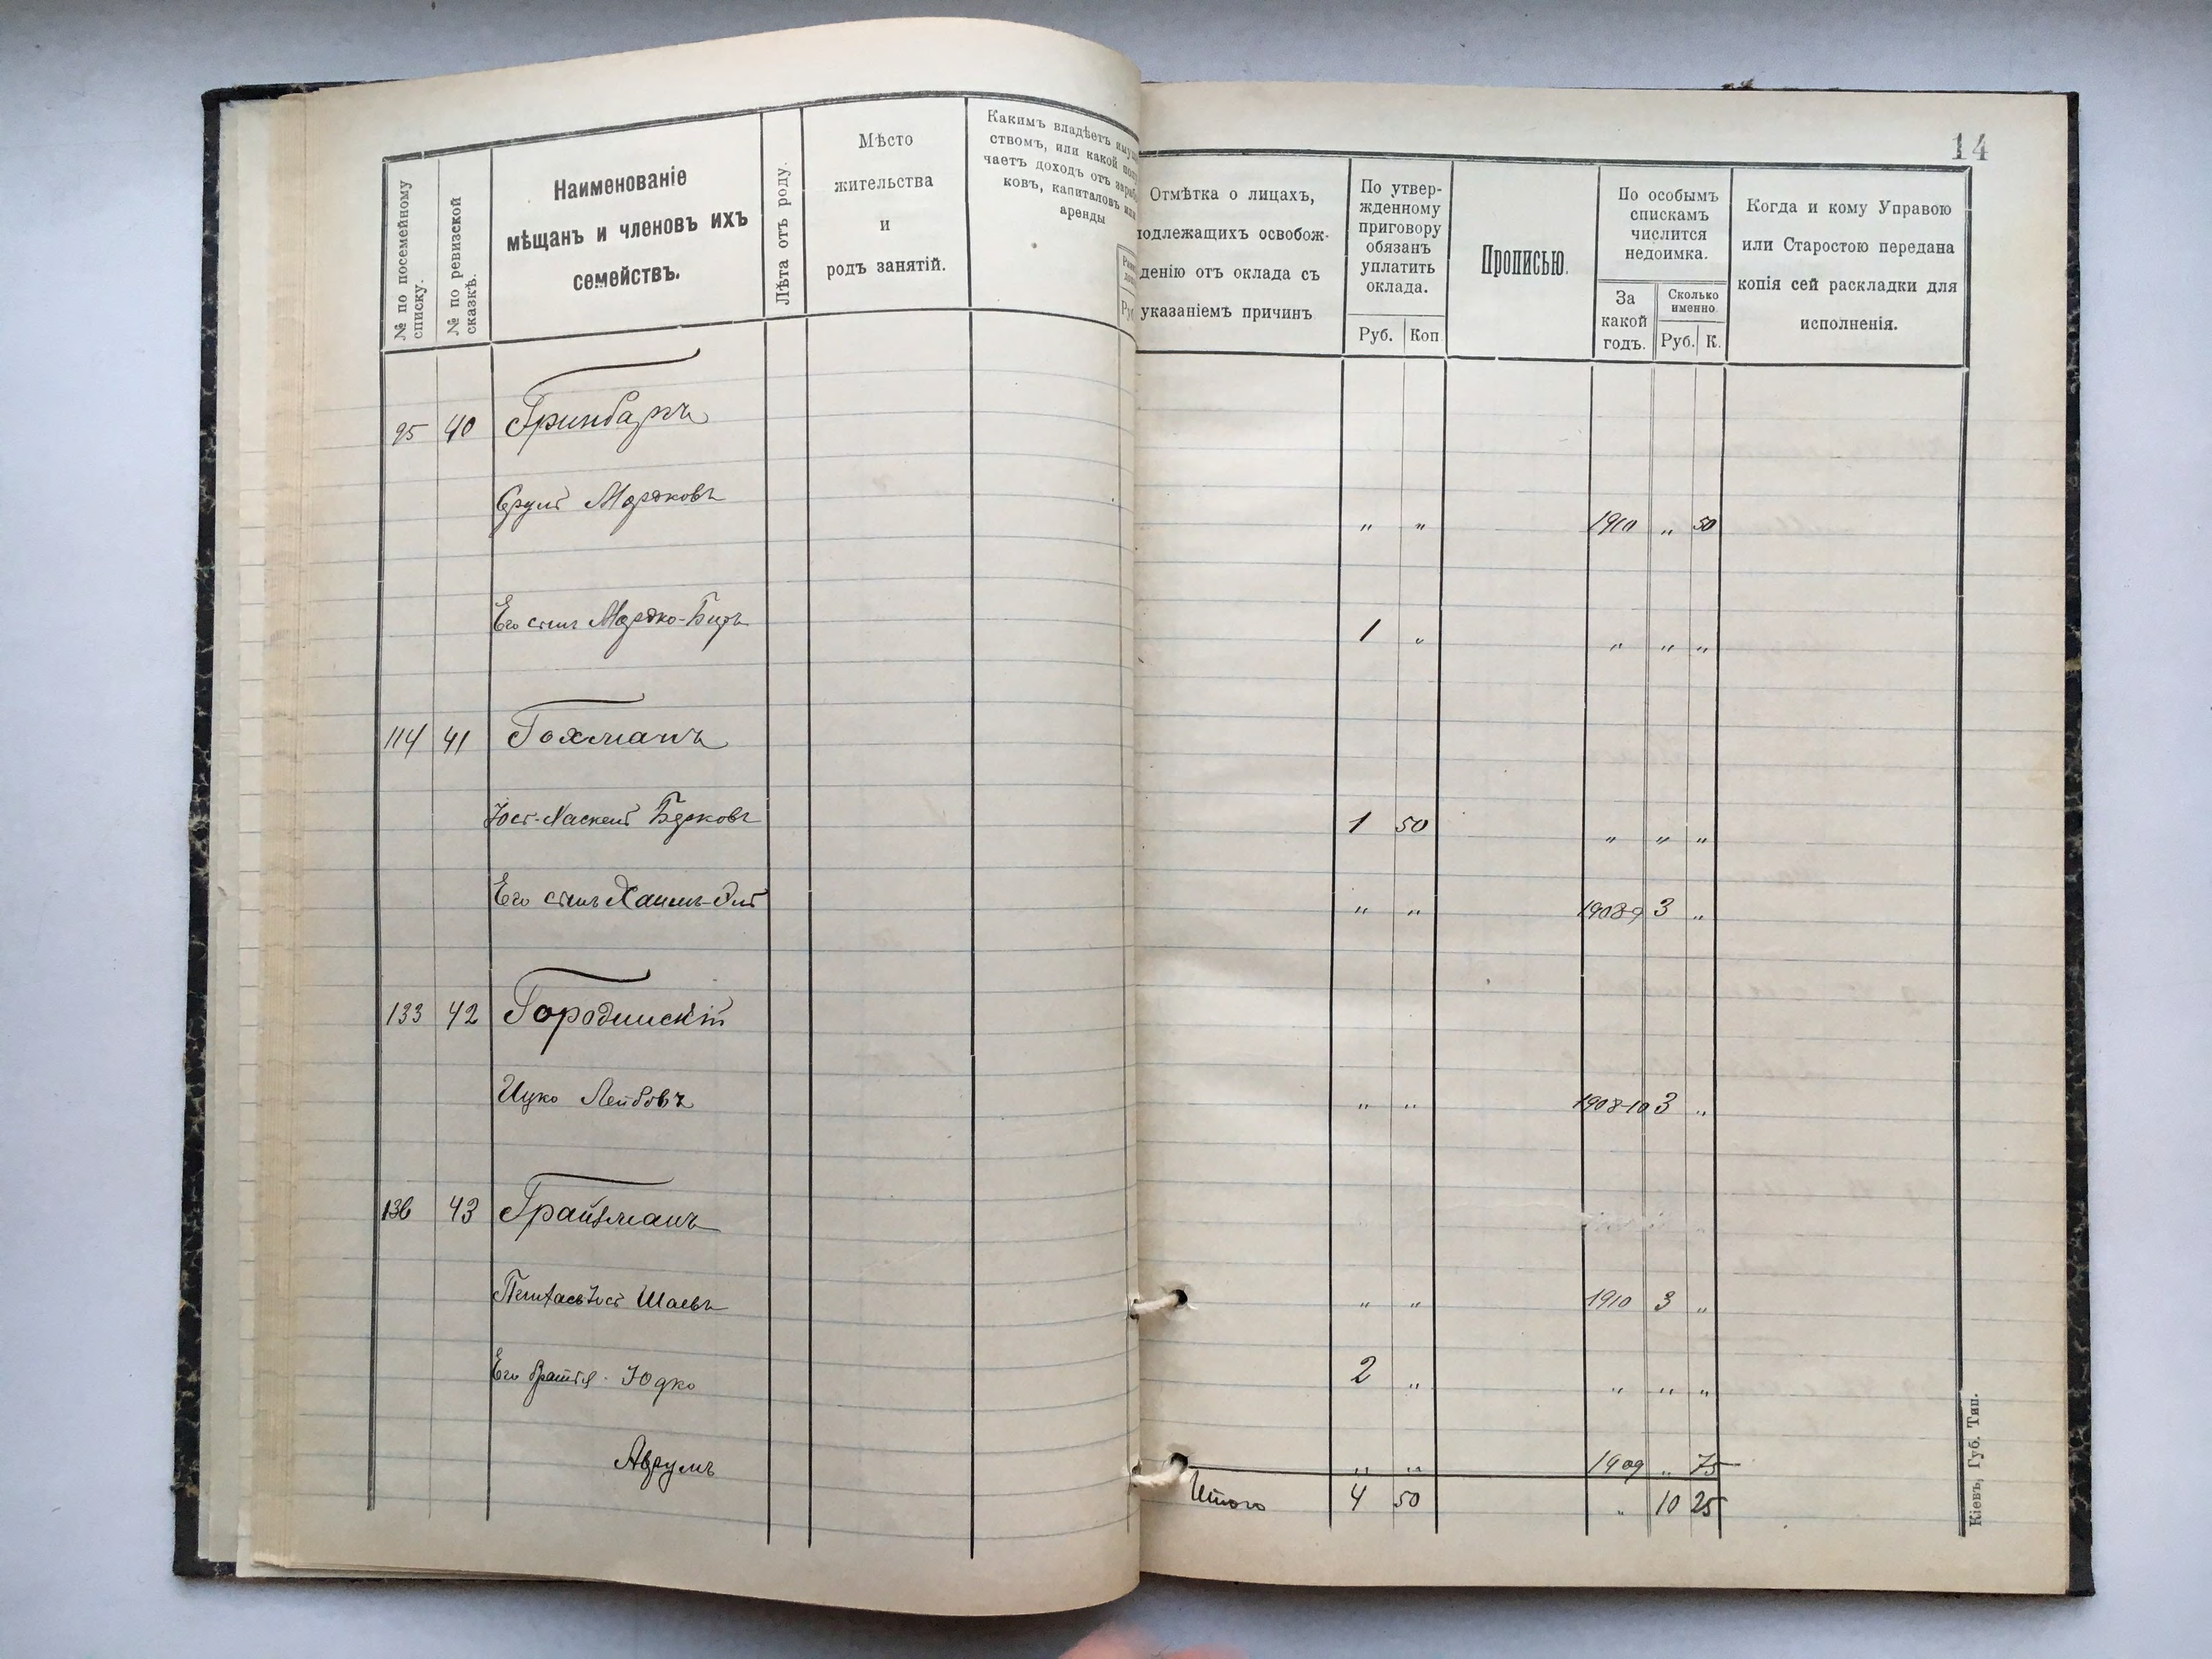 14
№ по посемейному списку.
№ по ревизской сказкѣ.
Наименованіе
мѣщанъ и членовъ ихъ
семействъ.
Лѣта отъ роду.
Мѣсто
жительства
и
родъ занятій.
Каким владѣетъ иму
ствомъ, или какой полу
чаетъ доходъ отъ зараб
ковъ, капиталовъ или
аренды
Отмѣтка о лицахъ,
подлежащихъ освобож-
денію отъ оклада съ
указаніемъ причинъ
По утвер-
жденному
приговору
обязанъ
уплатить
оклада.
Руб. Коп
Прописью.
По особымъ
спискамъ
числится
недоимка.
За
какой
годъ.
Сколько
именно
Руб. К.
Когда и кому Управою
или Старостою передана
копія сей раскладки для
исполненія.
95 40 Гринбаргъ
Срулъ Мордковъ " " 1910 " 50
Его сынъ Мордко-Беръ 1 " " " "
114 41 Гохманъ
Іось-Хаскель Берковъ 1 50 " " "
Его сынъ Хаимъ-Эль " " 1908-9 3 "
133 42 Городинскій
Ицко Лейбовъ " " 1908-10 3 "
136 43 Грайзманъ
Пейсась Іось Шаевъ " " 1910 3 "
Его братья Юдко 2 " " " "
Аврумъ " " 1909 " 75
Итого 4 50 " 10 25
Кіевъ, Губ. Тип.